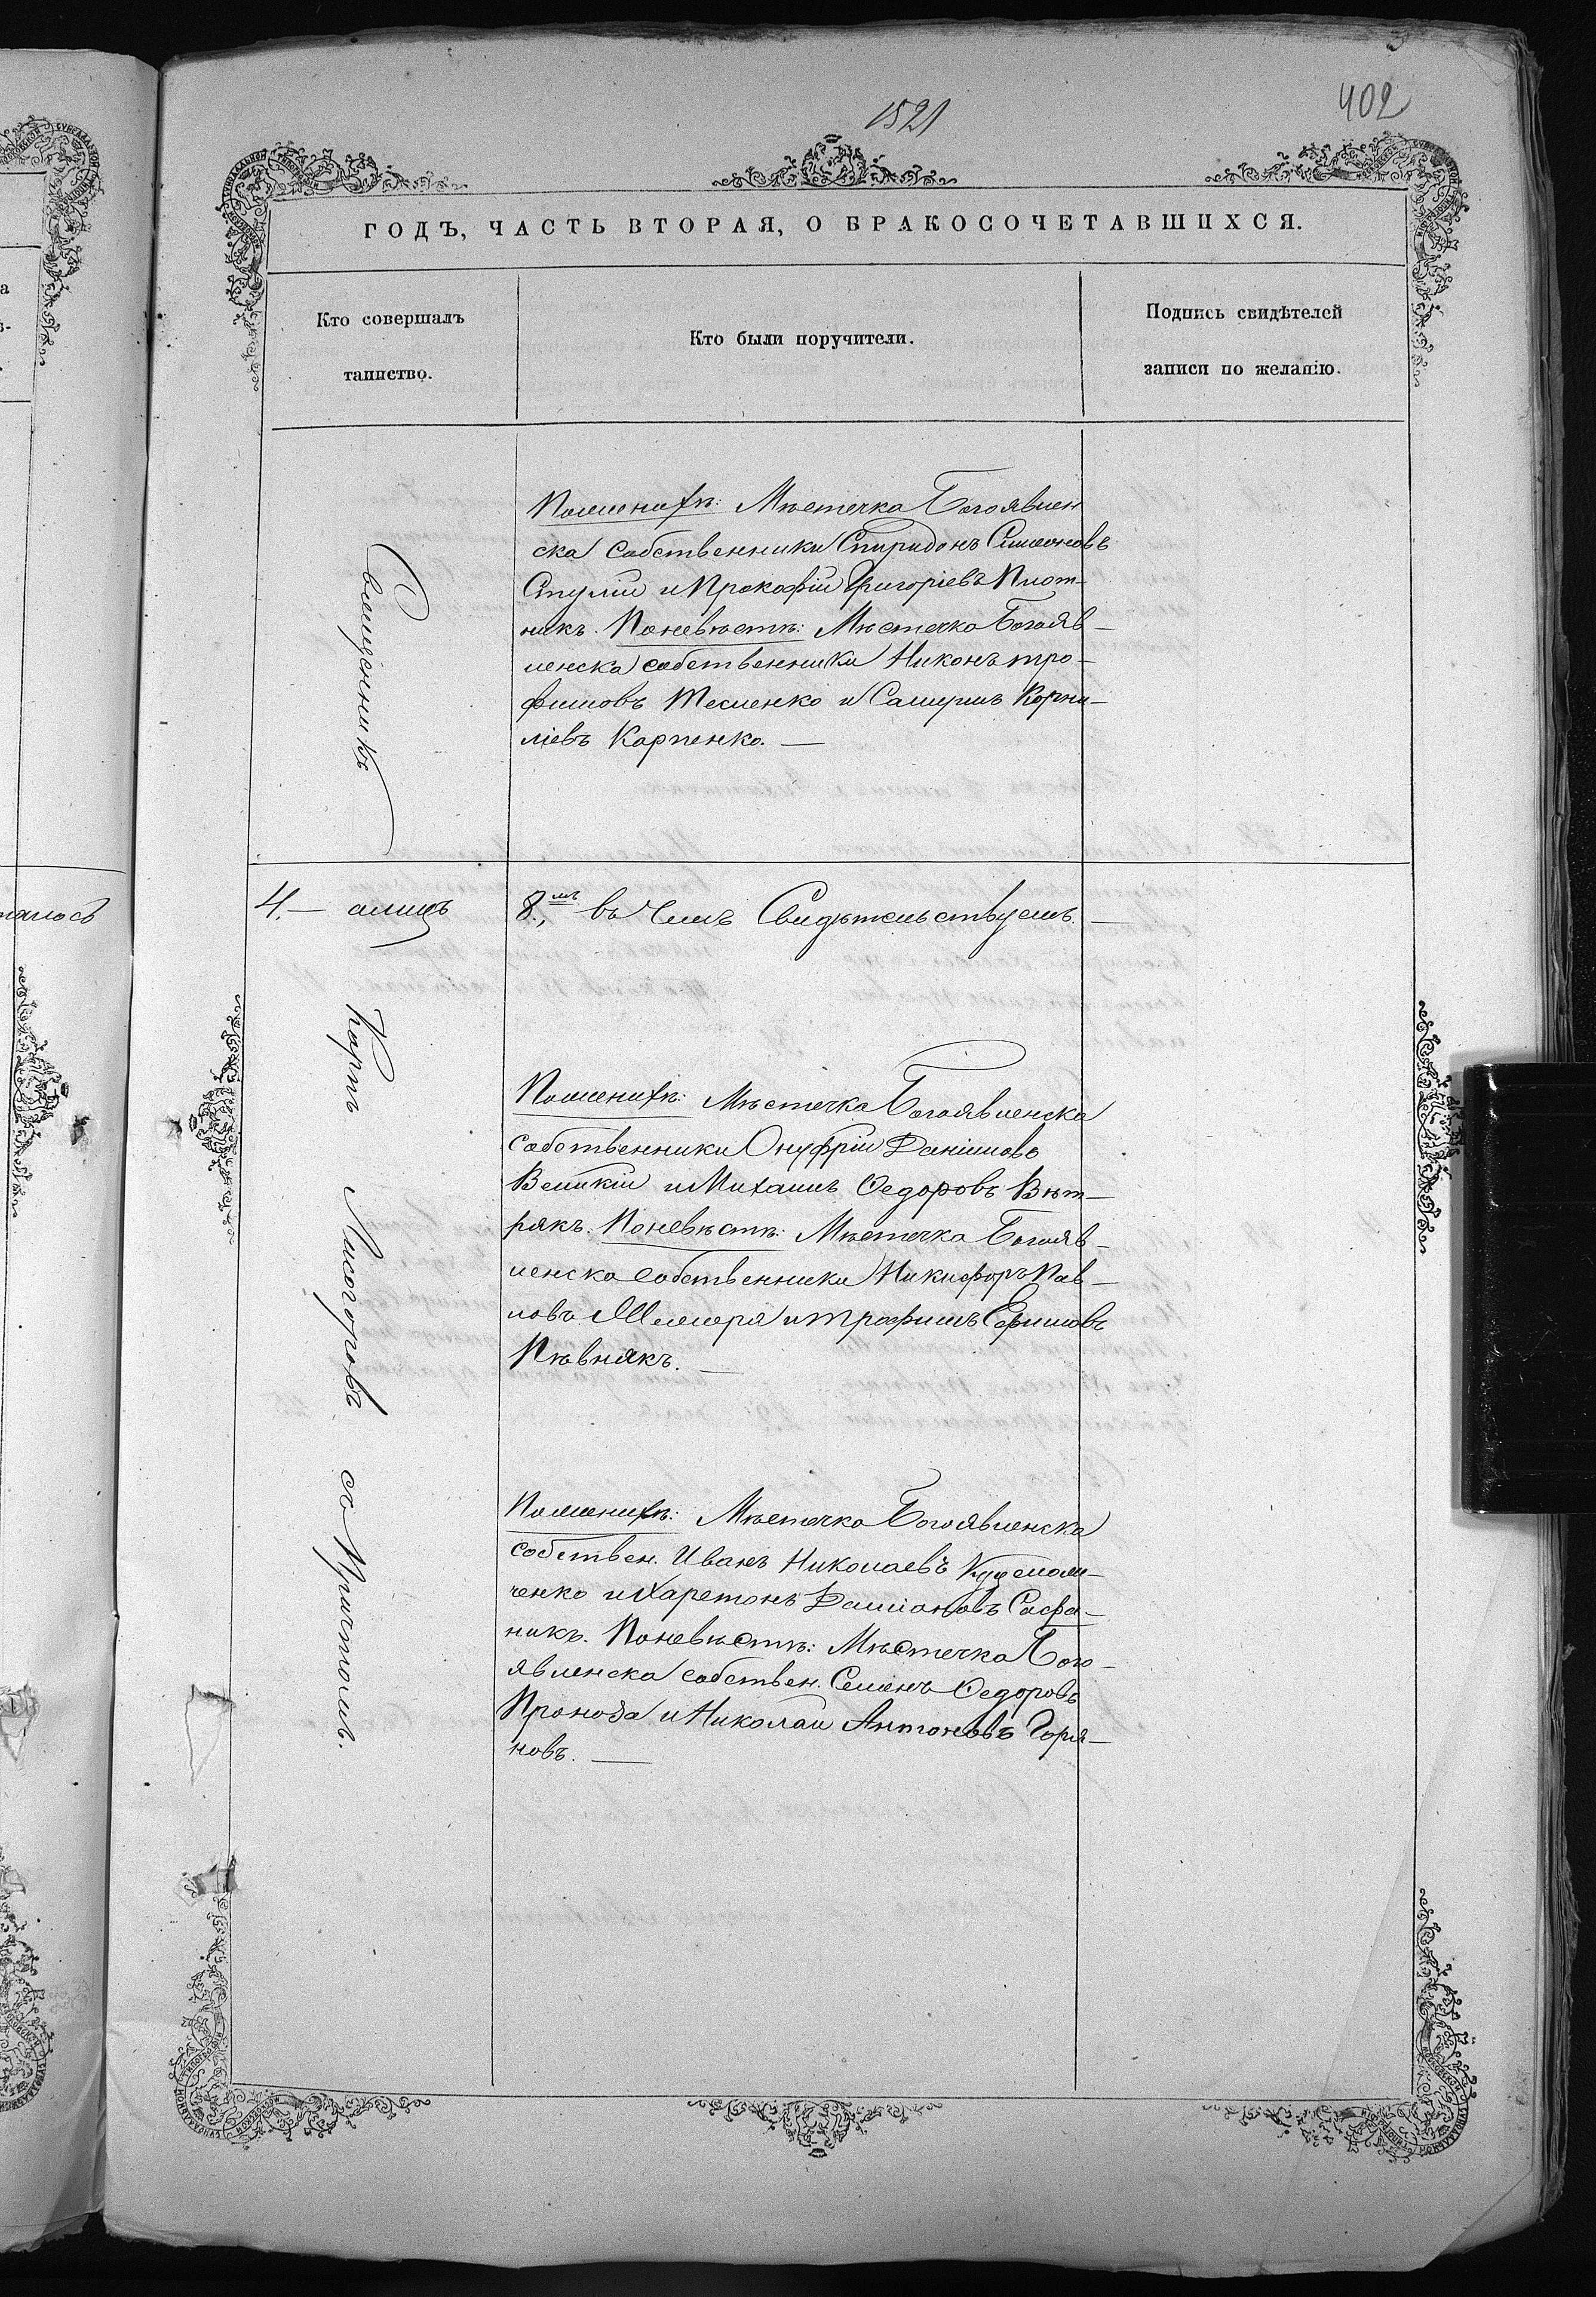 1521
402
ГОДЪ, ЧАСТЬ ВТОРАЯ, О БРАКОСОЧЕТАВШИХСЯ.
Кто совершалъ
таинство.
Кто были поручители.
Подпись свидѣтелей
записи по желанію.
Священникъ
Поженихѣ: Мѣстечка Богоявлен
ска собственники Спиридонъ Симеоновъ
и Прокофій Григоріевъ Плот-
никъ. Поневѣстѣ: Мѣстечка Богояв-
ленска собственники Никонъ Тро-
фимовъ Тесленко и Самуилъ Корни-
ліевъ Карпенко. —
4. — амицъ
8.,мъ въ чемъ Свидѣтельствуемъ. —
Карпъ Лисогоровъ со Причтомъ.
Поженихѣ: Мѣстечка Богоявленска
собственники Онуфрій Даніиловъ
Великій и Михаилъ Ѳедоровъ Вѣт-
рякъ. Поневѣстѣ: Мѣстечка Богояв-
ленска собственники Никифоръ Пав-
ловъ и Трофимъ Ефимовъ
Пѣвнякъ. —
Поженихѣ: Мѣстечка Богоявленска
собствен. Иванъ Николаевъ
ченко и Харетонъ Даміановъ Сафа-
никъ. Поневѣстѣ: Мѣстечка Бого-
явленска собствен. Семенъ Ѳедоровъ
Проноза и Николай Антоновъ Горя-
новъ. —